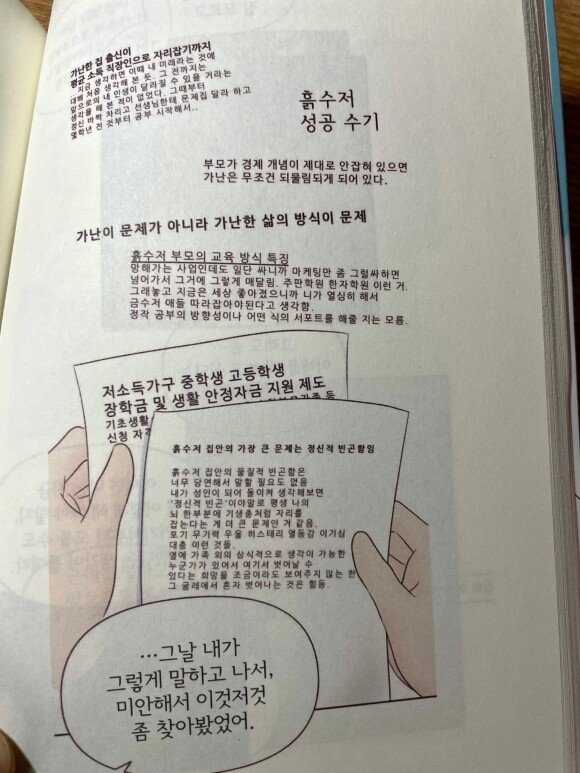 가난한 집 출신이
평균 소득 직장인으로 자리잡기까지
지금 생각하면 이때 내 미래라는 것에
대해 처음 생각해 본 듯. 그 전까지는
앞으로의 내 인생이 달라질 수 있을 거라는
생각을 해 본 적이 없었다. 그때부터
정신 바짝 차리고 선생님한테 문제집 달라 하고
몇학년 전 것부터 공부 시작해서..
흙수저
성공 수기
부모가 경제 개념이 제대로 안잡혀 있으면
가난은 무조건 되물림되게 되어 있다.
가난이 문제가 아니라 가난한 삶의 방식이 문제
흙수저 부모의 교육 방식 특징
망해가는 사업인데도 일단 싸니까 마케팅만 좀 그럴싸하면
넘어가서 그거에 그렇게 매달림. 주판학원 한자학원 이런 거.
그래놓고 지금은 세상 좋아졌으니까 니가 열심히 해서
금수저 애들 따라잡아야된다고 생각함.
정작 공부의 방향성이나 어떤 식의 서포트를 해줄 지는 모름.
저소득가구 중학생 고등학생
장학금 및 생활 안정자금 지원 제도
기초생활
신청 자격
흙수저 집안의 가장 큰 문제는 정신적 빈곤함임
흙수저 집안의 물질적 빈곤함은
너무 당연해서 말할 필요도 없음
내가 성인이 되어 돌이켜 생각해보면
'정신적 빈곤'이야말로 평생 나의
뇌 한부분에 기생충처럼 자리를
잡는다는 게 더 큰 문제인 거 같음.
포기 무기력 우울 히스테리 열등감 이기심
대충 이런 것들.
옆에 가족 외의 상식적으로 생각이 가능한
누군가가 있어서 여기서 벗어날 수
있다는 희망을 조금이라도 보여주지 않는 한
그 굴레에서 혼자 벗어나는 것은 힘듦.
…그날 내가
그렇게 말하고 나서,
미안해서 이것저것
좀 찾아봤었어.